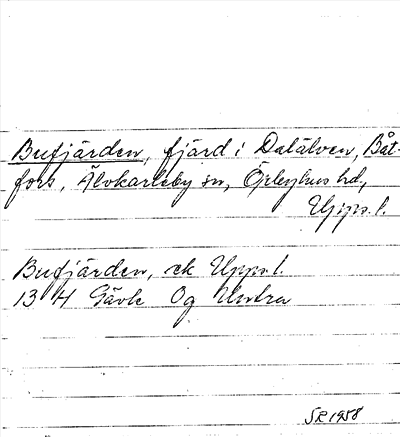 Bufjärden, fjärd i Dalälven, Båt-
fors, Älvkarleby sn, Örbyhus hd,
Upps. l.
Bufjärden, ek Upps l.
13 H Gävle Og Untra
SR 1958